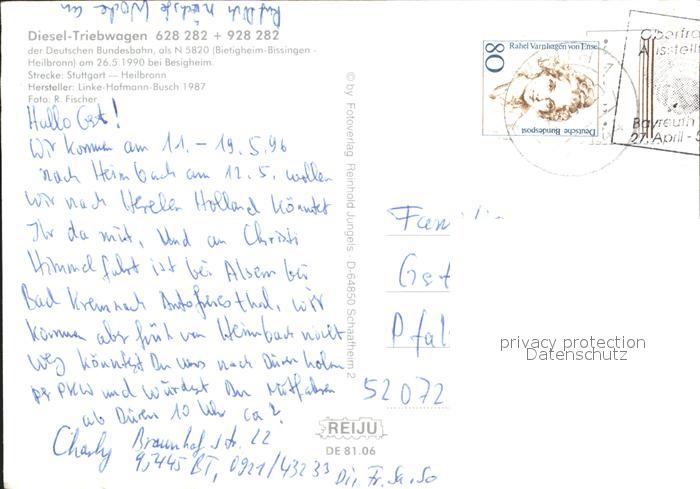 Ruf Dich nächste Woche an
Diesel-Triebwagen 628 282 + 928 282
der Deutschen Bundesbahn, als N 5820 (Bietigheim-Bissingen -
Heilbronn) am 26.5.1990 bei Besigheim.
Strecke: Stuttgart — Heilbronn
Hersteller: Linke-Hofmann-Busch 1987
Foto: R. Fischer
Hallo Gst!
Wir kommen am 11. – 19.5.96
nach Heimbach am 12.5. wollen
wir nach Holland könntet
Ihr da mit, Und an Christi
Himmelfahrt ist bei Alsenz bei
Bad Kreuznach wir
kommen aber früh von Heimbach nicht
weg könntest Du uns nach Düren holen
per PKW und würdest Du Mitfahren
ab Düren 10 Uhr ca?
Charly
Braunhofstr. 22
95445 BT, 0921/43233 Di, Fr. Sa. So
© by Fotoverlag Reinhold Jungels D-64850 Schaafheim 2
REIJU
DE 81.06
80
Rahel Varnhagen von Ense
Deutsche Bundespost
Oberfra
Ausstell
Bayreuth
27. April - 5
Fam
Gst
Pfal
52072
privacy protection
Datenschutz